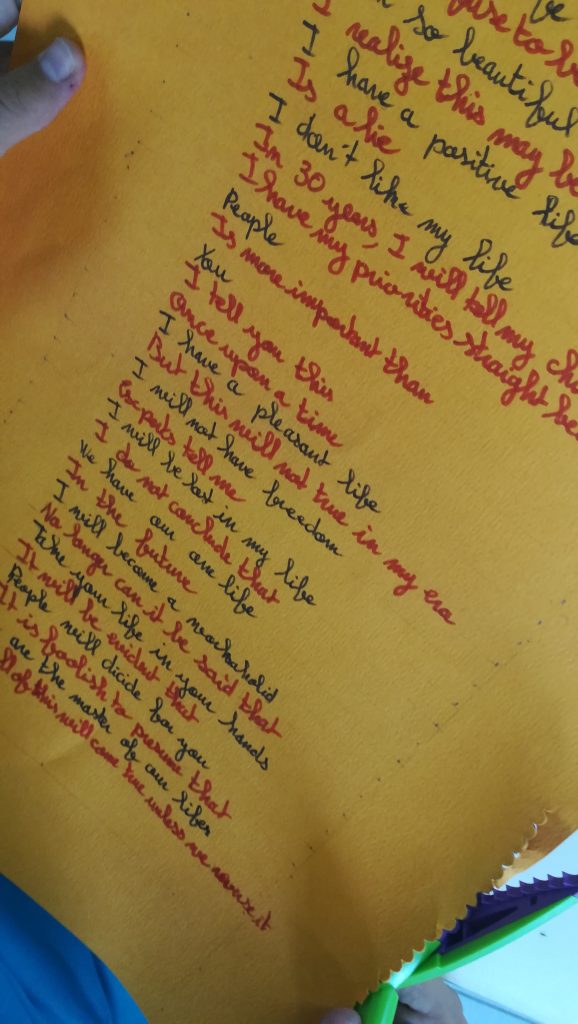 be
use to b
so beautiful
I realize this may be
I have a positive life
Is a lie
I don't like my life
In 30 years, I will tell my chi
I have my priorities straight be
People
Is more important than
You
I tell you this
Once upon a time
I have a pleasant life
But this will not true in my era
I will not have freedom
tell me
I will be lost in my life
I do not conclude that
We have our life
In the future
I will become a workaholid
No longer can it be said that
Take your life in your hands
It will be evident that
People will decide for you
It is foolish to presume that
are the master of our lifes
ll of this will come true unless we it